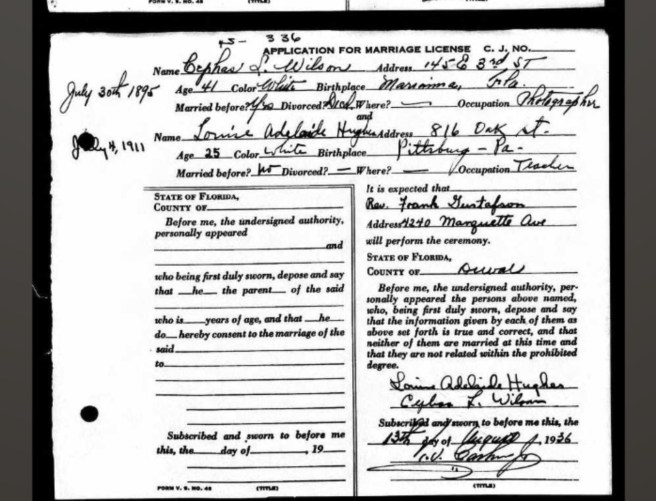 FORM V. S. NO. 48 (TITLE) (TITLE)
5- 336
APPLICATION FOR MARRIAGE LICENSE C. J. NO.
Name Cephas L. Wilson Address 145 E 3rd ST
July 30th 1895 Age 41 Color White Birthplace Marianna, Fla.
Married before? Yes Divorced? Where? — Occupation Photographer
and
Name Louise Adelaide Hughes Address 816 Oak St.
July 4, 1911 Age 25 Color White Birthplace Pittsburg - Pa-
Married before? No Divorced? — Where? — Occupation Teacher
STATE OF FLORIDA,
COUNTY OF
Before me, the undersigned authority,
personally appeared
and
who being first duly sworn, depose and say
that he the parent of the said
who is years of age, and that he
do hereby consent to the marriage of the
said
to
Subscribed and sworn to before me
this, the day of , 19
FORM V. S. NO. 48 (TITLE)
It is expected that
Rev. Frank Gustafson
Address 4240 Marquette Ave
will perform the ceremony.
STATE OF FLORIDA,
COUNTY OF Duval
Before me, the undersigned authority, per-
sonally appeared the persons above named,
who, being first duly sworn, depose and say
that the information given by each of them as
above set forth is true and correct, and that
neither of them are married at this time and
that they are not related within the prohibited
degree.
Louise Adelaide Hughes
Cephas L. Wilson
Subscribed and sworn to before me this, the
13th day of August, 1936
(TITLE)